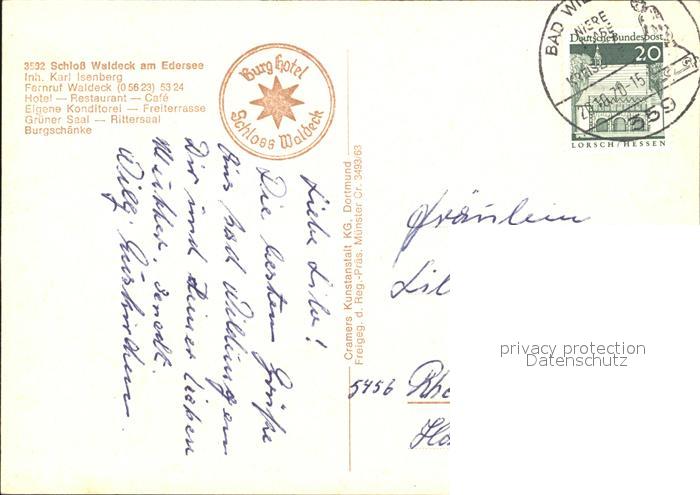 3592 Schloß Waldeck am Edersee
Inh. Karl Isenberg
Fernruf Waldeck (0 56 23) 53 24
Hotel — Restaurant — Café
Eigene Konditorei — Freiterrasse
Grüner Saal — Rittersaal
Burgschänke
Burg Hotel
Schloss Waldeck
Liebe Lilo!
Die besten Grüße
Aus Bad Wildungen
Dir und Deiner lieben
Mutter. sendet.
Willy
Cramers Kunstanstalt KG, Dortmund
Freigeg. d. Reg.-Präs. Münster Cr. 3493/63
BAD WI
Deutsche Bundespost
20
20.10.70-15
359
LORSCH/HESSEN
Fräulein
Lil
5456 Rhe
privacy protection
Datenschutz